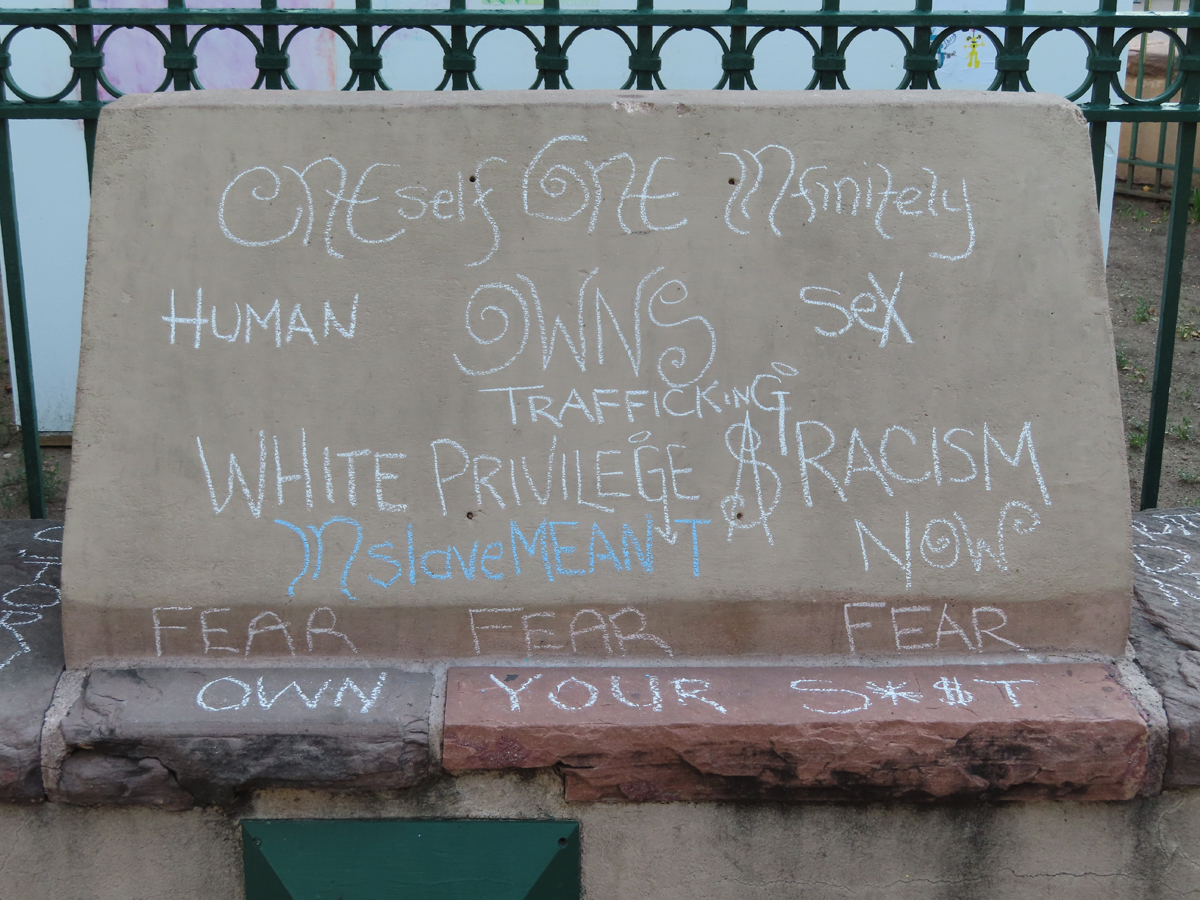 ONEself ONE INfinitely
HUMAN OWNS sex
TRAFFICKING
WHITE PRIVILEGE $ RACISM
INslaveMEANT NOW
FEAR FEAR FEAR
OWN YOUR S*$T